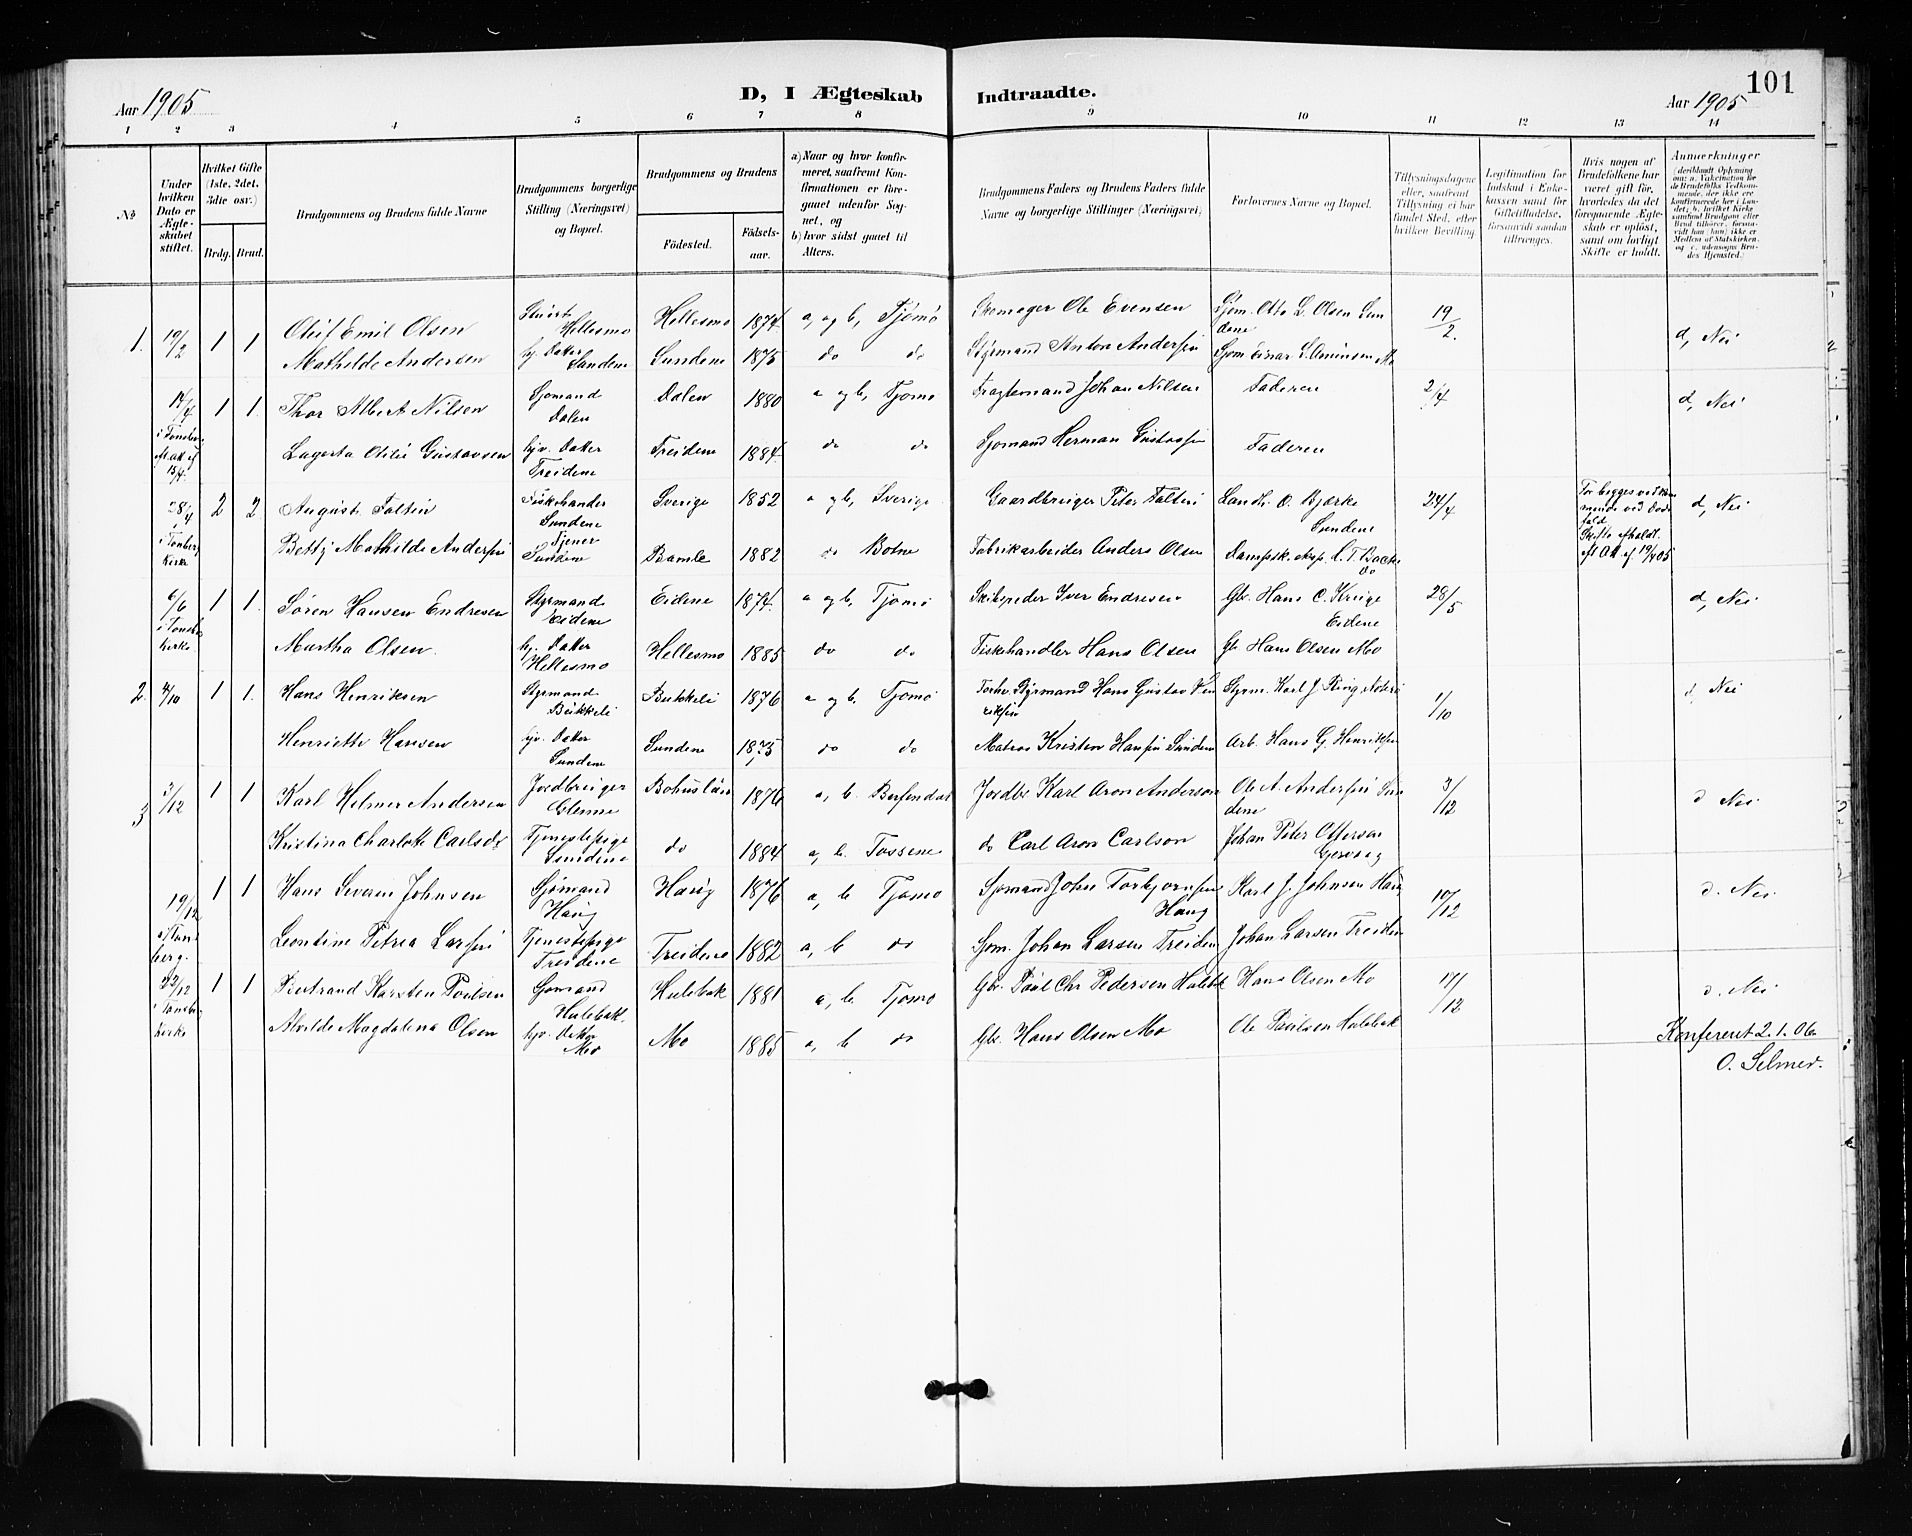 101
Aar 1905
D, I Ægteskab Indtraadte.
Aar 1905
1 2 3 4 5 6 7 8 9 10 11 12 13 14
No
Under hvilken Dato er Ægteskabet stiftet.
Hvilket Gifte (1ste, 2det, 3die osv.)
Brdg. Brud.
Brudgommens og Brudens fulde Navne
Brudgommens borgerlige Stilling (Næringsvei) og Bopæl.
Brudgommens og Brudens
Födested.
Födselsaar.
a) Naar og hvor konfirmeret, saafremt Konfirmationen er foregaaet udenfor Sognet, og
b) hvor sidst gaaet til Alters.
Brudgommens Faders og Brudens Faders fulde Navne og borgerlige Stillinger (Næringsvei)
Forlovernes Navne og Bopæl.
Tillysningsdagene eller, saafremt Tillysning ei har fundet Sted, efter hvilken Bevilling
Legitimation for Indskud i Enkekassen samt for Giftetilladelse, forsaavidt saadan tiltrænges.
Hvis nogen af Brudefolkene har været gift før, hvorledes da det foregaaende Ægteskab er opløst, samt om lovligt Skifte er holdt.
Anmerkninger
1. 19/2 1 1 Oluf Emil Olsen Hellesmo Hellesmo 1874 a, og b, Tjømø Skomager Ole Evensen Sjøm. Otto L. Olsen Sundene 19/2. d, Nei
Mathilde Andersen hj. Datter Sundene Sundene 1875 do do Styrmand Anton Andersen Sjøm Einar
14/4 1 1. Thor Albert Nilsen Sjømand Dalen Dalen 1880 a og b, Tjømø Fragtemand Johan Nilsen Faderen 2/4 d, Nei
Lagerta Gustavsen hjv. Datter Treidene Treidene 1884. do do Sjømand Herman Gustavsen Faderen
28/4 i Tønsberg Kirke 2 2 August Faltin Fiskehandler Sundene Sverige 1852 a og b, Sverige Gaardbruger Peter Faltin Landh. O. Bjerke Sundene 24/4 For begges vedkommende ved Dødsfald Skifte afholdt. d, Nei
Betty Mathilde Andersen Tjener Sundene Bamle 1882 do Botne Fabrikarbeider Anders Olsen Dampsk. eksp.
6/6 i Tønsb. Kirke. 1 1. Søren Hansen Endresen Styrmand Eidene Eidene 1874. a og b, Tjømø Skibsreder Iver Endresen Gbr. Hans C. Krüge Eidene 28/5 d, Nei
Martha Olsen. hj. Datter Hellesmo Hellesmo 1885 do do Fiskehandler Hans Olsen Gbr Hans Olsen Mo
2. 4/10 1 1. Hans Henriksen Styrmand Bukkeli Bukkeli 1876 a og b, Tjømø Forhv. Styrmand Hans Gustav Henriksen Styrm. Karl J. Ring 1/10 d, Nei
Henriette Hansen hjv. Datter Sundene Sundene 1875 do do Matros Kristen Hansen Sundene Arb. Hans G. Henriksen
3 3/12 1 1 Karl Helmer Andersen Jordbruger Glenne Bohuslän 1876 a, b. Jordbr Karl Aron Anderson Ole A. Andersen Sundene 3/12 d Nei
Kristina Charlotte Carlsdr Tjenestepige Sundene do 1884 a, b. Tossene do Carl Aron Carlson Johan Peter Ottersen
19/12 i Tønsberg. 1 1 Hans Severin Johnsen Sjømand Haug Haug 1876 a, b Tjømø Sjømand John Torbjørnsen Haug Karl J. Johnsen Haug 10/12 d. Nei
Leontine Petrea Larsen Tjenestepige Treidene Treidene 1882 a, b do Sjøm. Johan Larsen Treidene Johan Larsen Treidene
22/12 i Tønsb. Kirke 1 1 Bertrand Karsten Poulsen Sjømand Hulebak. Hulebak 1881 a, b. Tjømø Gbr. Poul Chr Pedersen Hulebak Hans Olsen Mo 17/12 d. Nei
Alvilde Magdalena Olsen hjv. Datter Mo Mo 1885 a, b do Gbr. Hans Olsen Mo Ole Poulsen Hulebak
Konfereret 2.1.06
O. Selmer.